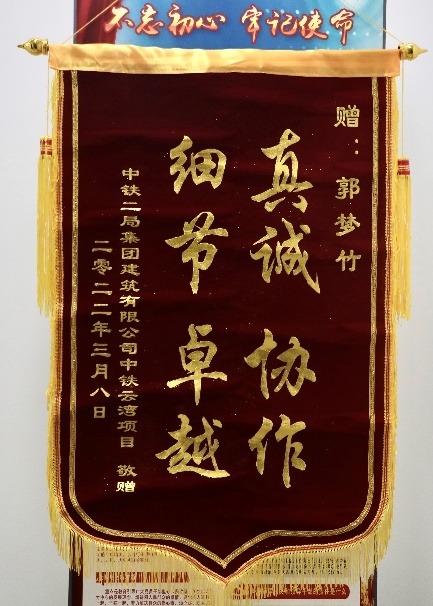 不忘初心 牢记使命
赠：郭梦竹
真诚 协作
细节 卓越
中铁二局集团建筑有限公司中铁云湾项目 敬赠
二零二二年三月八日